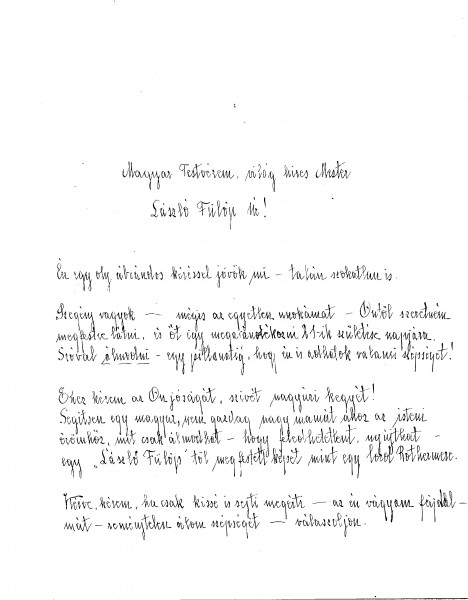 Magyar Testvérem, világ híres Mester
László Fülöp Úr!
Én egy oly ábrándos kéréssel jövök mi – talán szokatlan is.
Szegény vagyok — mégis az egyetlen unokámat – Öntől szeretném
megfestve látni, és őt így megajándékozni 21-ik születése napjára.
Szóval álmodni – egy pillanatig, hogy én is adhatok valami szépséget!
Ehez kérem az Ön jóságát, szívét nagyúri kegyét!
Segítsen egy magyar, nem gazdag nagymamát ahoz az isteni
örömhöz, mit csak álmodhat – hogy
egy „László Fülöp" től megfestett képét mint egy lord Rothermere.
kérem, ha csak kissé is sejti megérti — az én vágyam fájdal-
mát – reménytelen álom szépségét — válaszoljon.